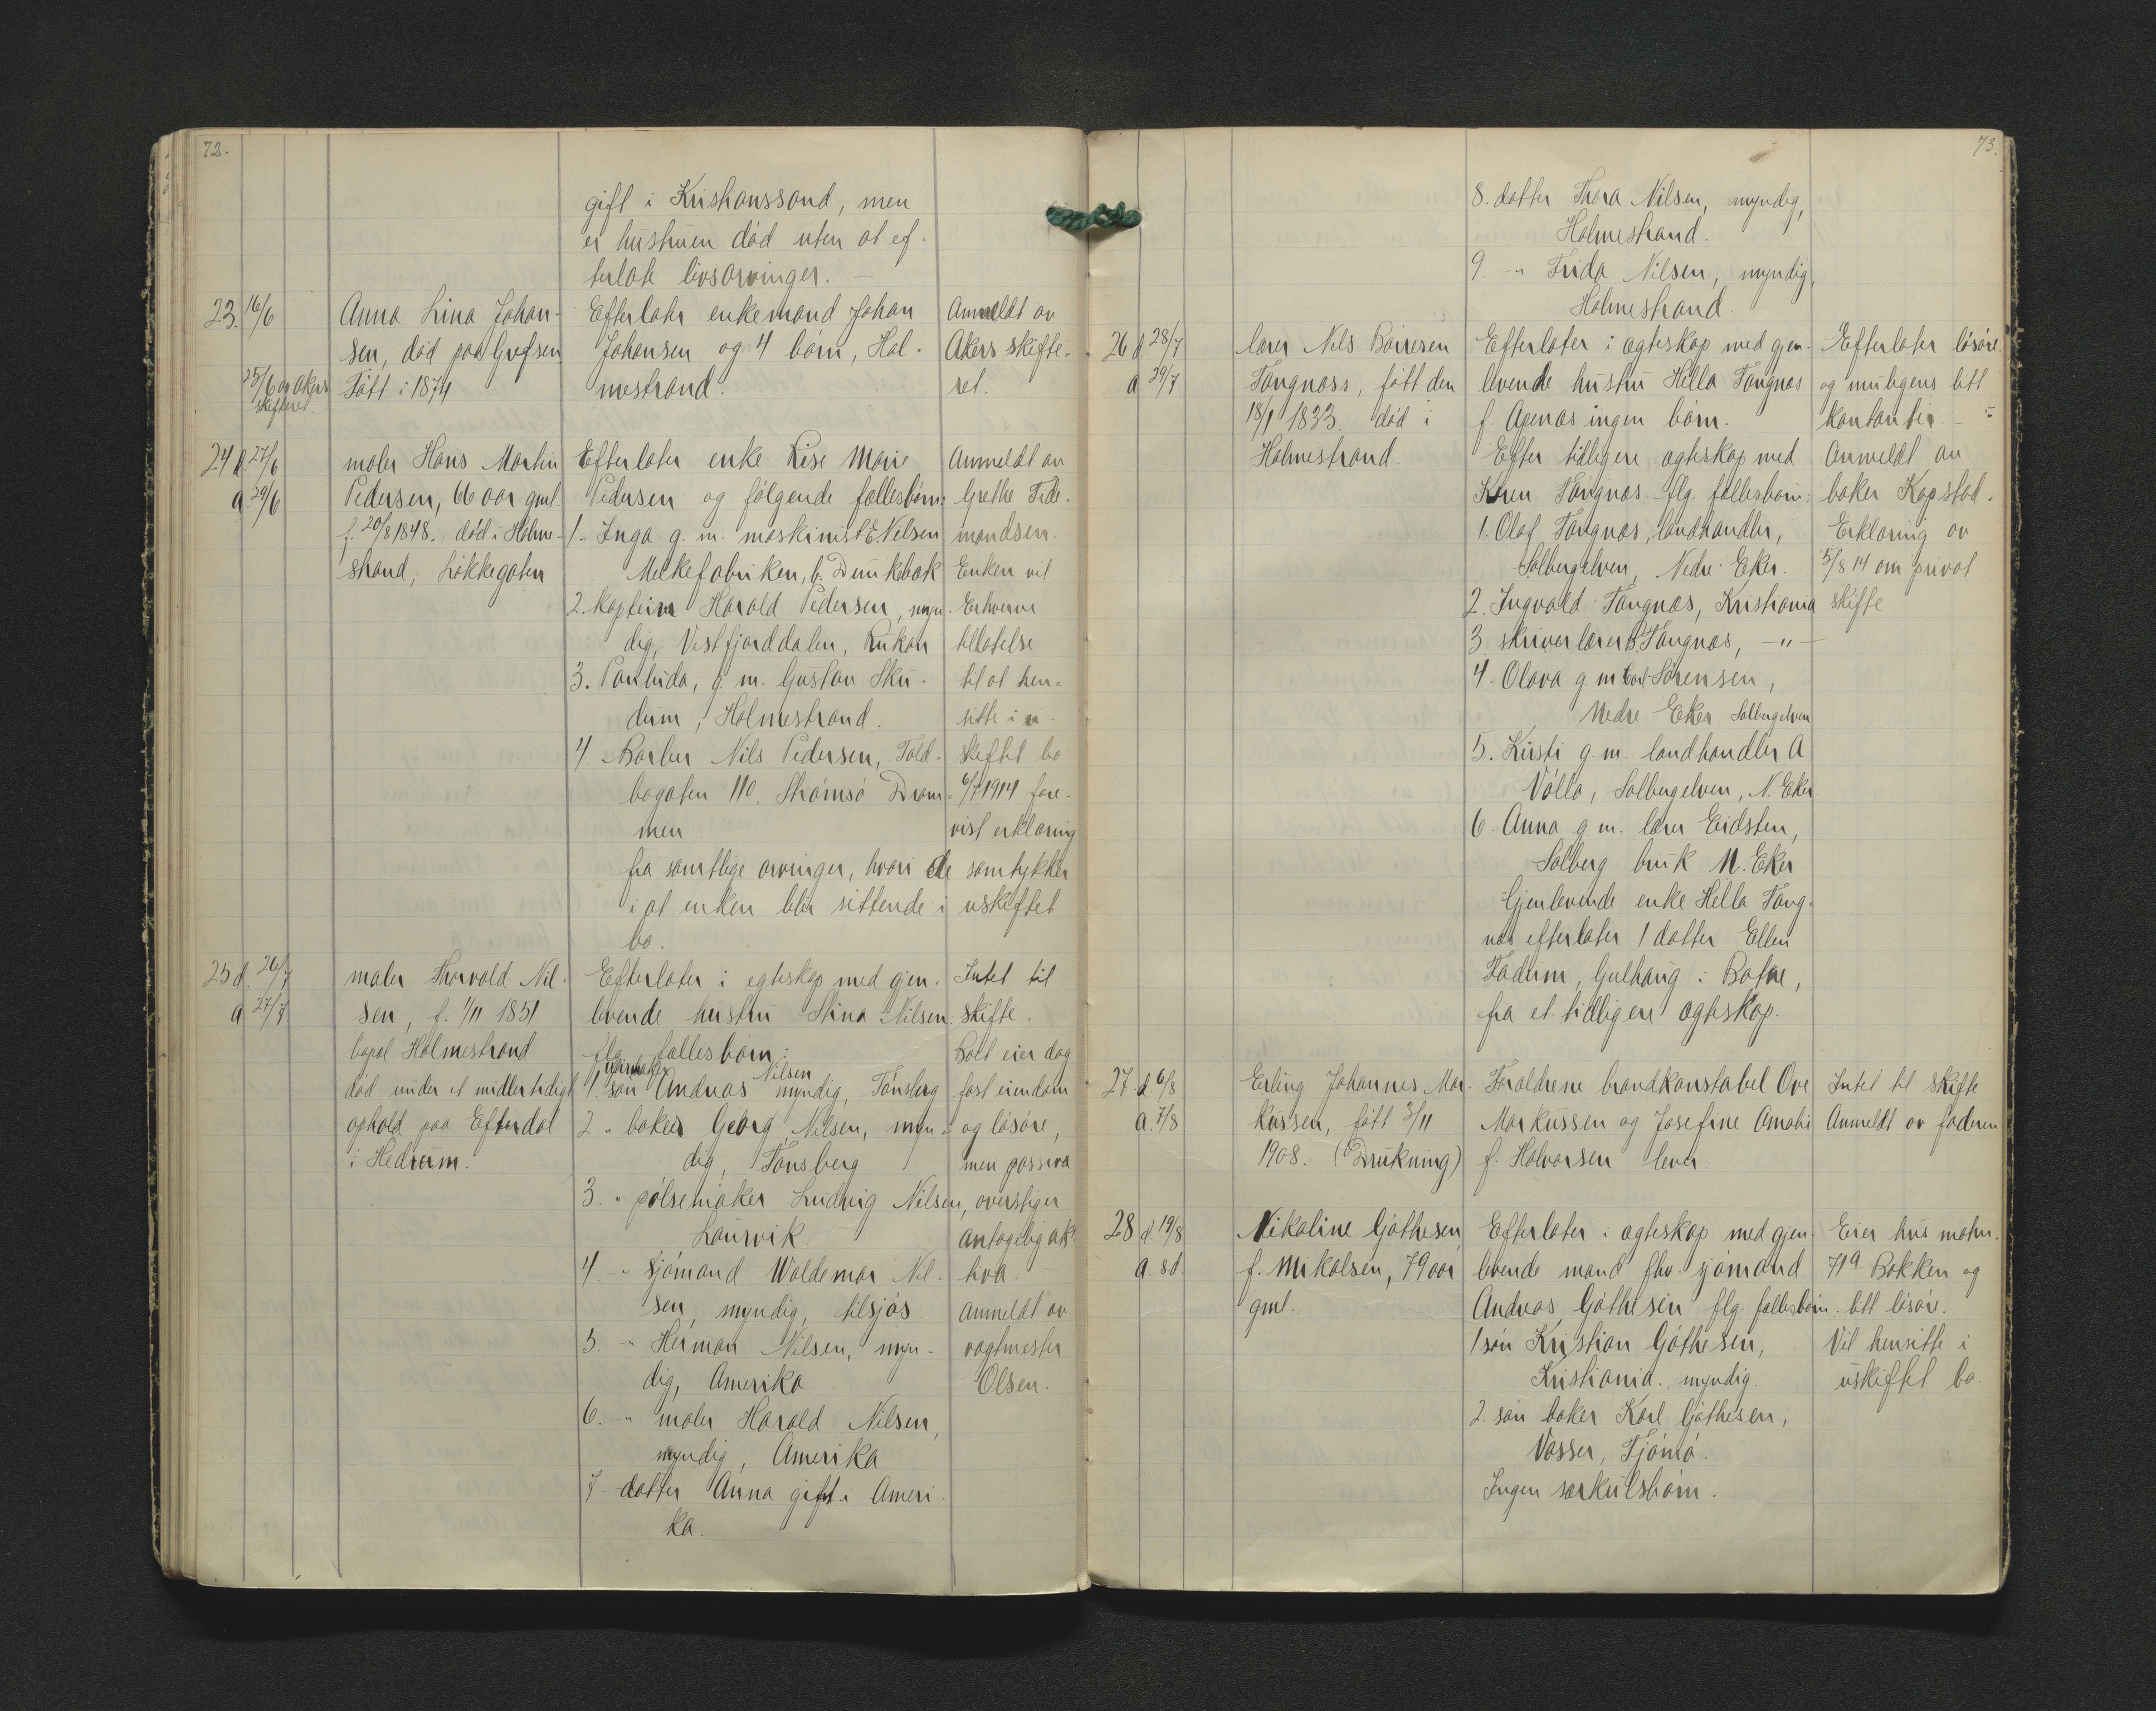 72.
gift i Kristianssand, men
er hustruen død uten at ef-
terlate livsarvinger. —
23. 16/6 Anna Lina Johan- Efterlater enkemand Johan Anmeldt av
sen, død paa Grefsen Johansen og 4 børn, Hol- Akers skifte-
25/6 av Akers Født i 1874 mestrand. ret.
skifteret.
24 d 27/6 maler Hans Martin Efterlater enke Lise Marie Anmeldt av
a 29/6 Pedersen, 66 aar gml. Pedersen og følgende fællesbørn: Grethe Tide-
f. 20/8 1848. død i Holme- 1. Inga g. m. maskinist E Nilsen mandsen.
strand, Løkkegaten Melkefabriken, b. Dunkebæk Enken vil
2. Kaptein Harald Pedersen, myn- Erhverve
dig, Vestfjorddalen, Rukan tillatelse
3. Panhida, g. m. Gustav Sku- til at hen-
dum, Holmestrand. sitte i u-
4. Barber Nils Pedersen, Told- skiftet bo
bogaten 110, Strømsø Dram- 6/7 1914 fore-
men vist erklæring
fra samtlige arvinger, hvori de samtykker
i at enken blir sittende i uskiftet
bo.
25 d. 26/7 maler Thorvald Nil- Efterlater i egteskap med gjen- Intet til
a 27/7 sen, f. 1/11 1851 levende hustru Stina Nilsen skifte.
bopæl Holmestrand flg. fællesbørn: Boet eier dog
død under et midlertidigt 1. søn urmaker Andreas Nilsen myndig, Tønsberg fast eiendom
ophold paa Efterdal 2 " baker Georg Nilsen, myn- og løsøre,
i Hedrum. dig, Tønsberg men passiva
3. " pølsemaker Ludvig Nilsen, overstiger
Laurvik antagelig ak-
4. -" sjømand Waldemar Nil- tiva.
sen, myndig, tilsjøs Anmeldt av
5. -" Herman Nilsen, myn- vagtmester
dig, Amerika Olsen.
6. -" maler Harald Nilsen,
myndig, Amerika
7. datter Anna gift i Ameri-
ka.
73.
8. datter Thora Nilsen, myndig,
Holmestrand.
9. -" Frida Nilsen, myndig,
Holmestrand
26 d 28/7 lærer Nils Børresen Efterlater i ægteskap med gjen- Efterlater løsøre
a 29/7 Tangnæss, født den levende hustru Hella Tangnæs og muligens litt
18/1 1833. død i f Apenæs ingen børn. kontanter. —
Holmestrand. Efter tidligere ægteskap med Anmeldt av
Karen Tangnæs flg. fællesbørn: baker Kopstad.
1. Olaf Tangnæs, landhandler, Erklæring av
Solbergelven, Nedre Eker. 5/8 14 om privat
2. Ingvald Tangnæs, Kristiania skifte
3 skriverlærer B Tangnæs, —"—
4. Olava g. m Carl Sørensen,
Nedre Eker Solbergelven
5. Kirsti g. m. landhandler A
Vølla, Solbergelven, N. Eker.
6. Anna g. m. lærer Eidsten,
Solberg bruk N. Eker
Gjenlevende enke Hella Tang-
næs efterlater 1 datter Ellen
Fadum, Gulhaug i Botne,
fra et tidligere ægteskap.
27 d. 6/8 Erling Johannes Mar- Forældrene brandkonstabel Ove Intet til skifte
a. 7/8 kussen, født 3/11 Markussen og Josefine Amalie Anmeldt av faderen
1908. (Drukning) f. Halvorsen lever.
28 d 19/8 Nikoline Gjøthesen, Efterlater i ægteskap med gjen- Eier hus matrn.
a. s.d. f. Mikalsen, 79 aar levende mand fhv. sjømand 71a Bakken og
gml. Andreas Gjøthesen flg. fællesbørn. litt løsøre.
1 søn Kristian Gjøthesen, Vil hensitte i
Kristiania. myndig. uskiftet bo.
2. søn baker Karl Gjøthesen,
Vasser, Tjømø.
Ingen særkulsbørn.